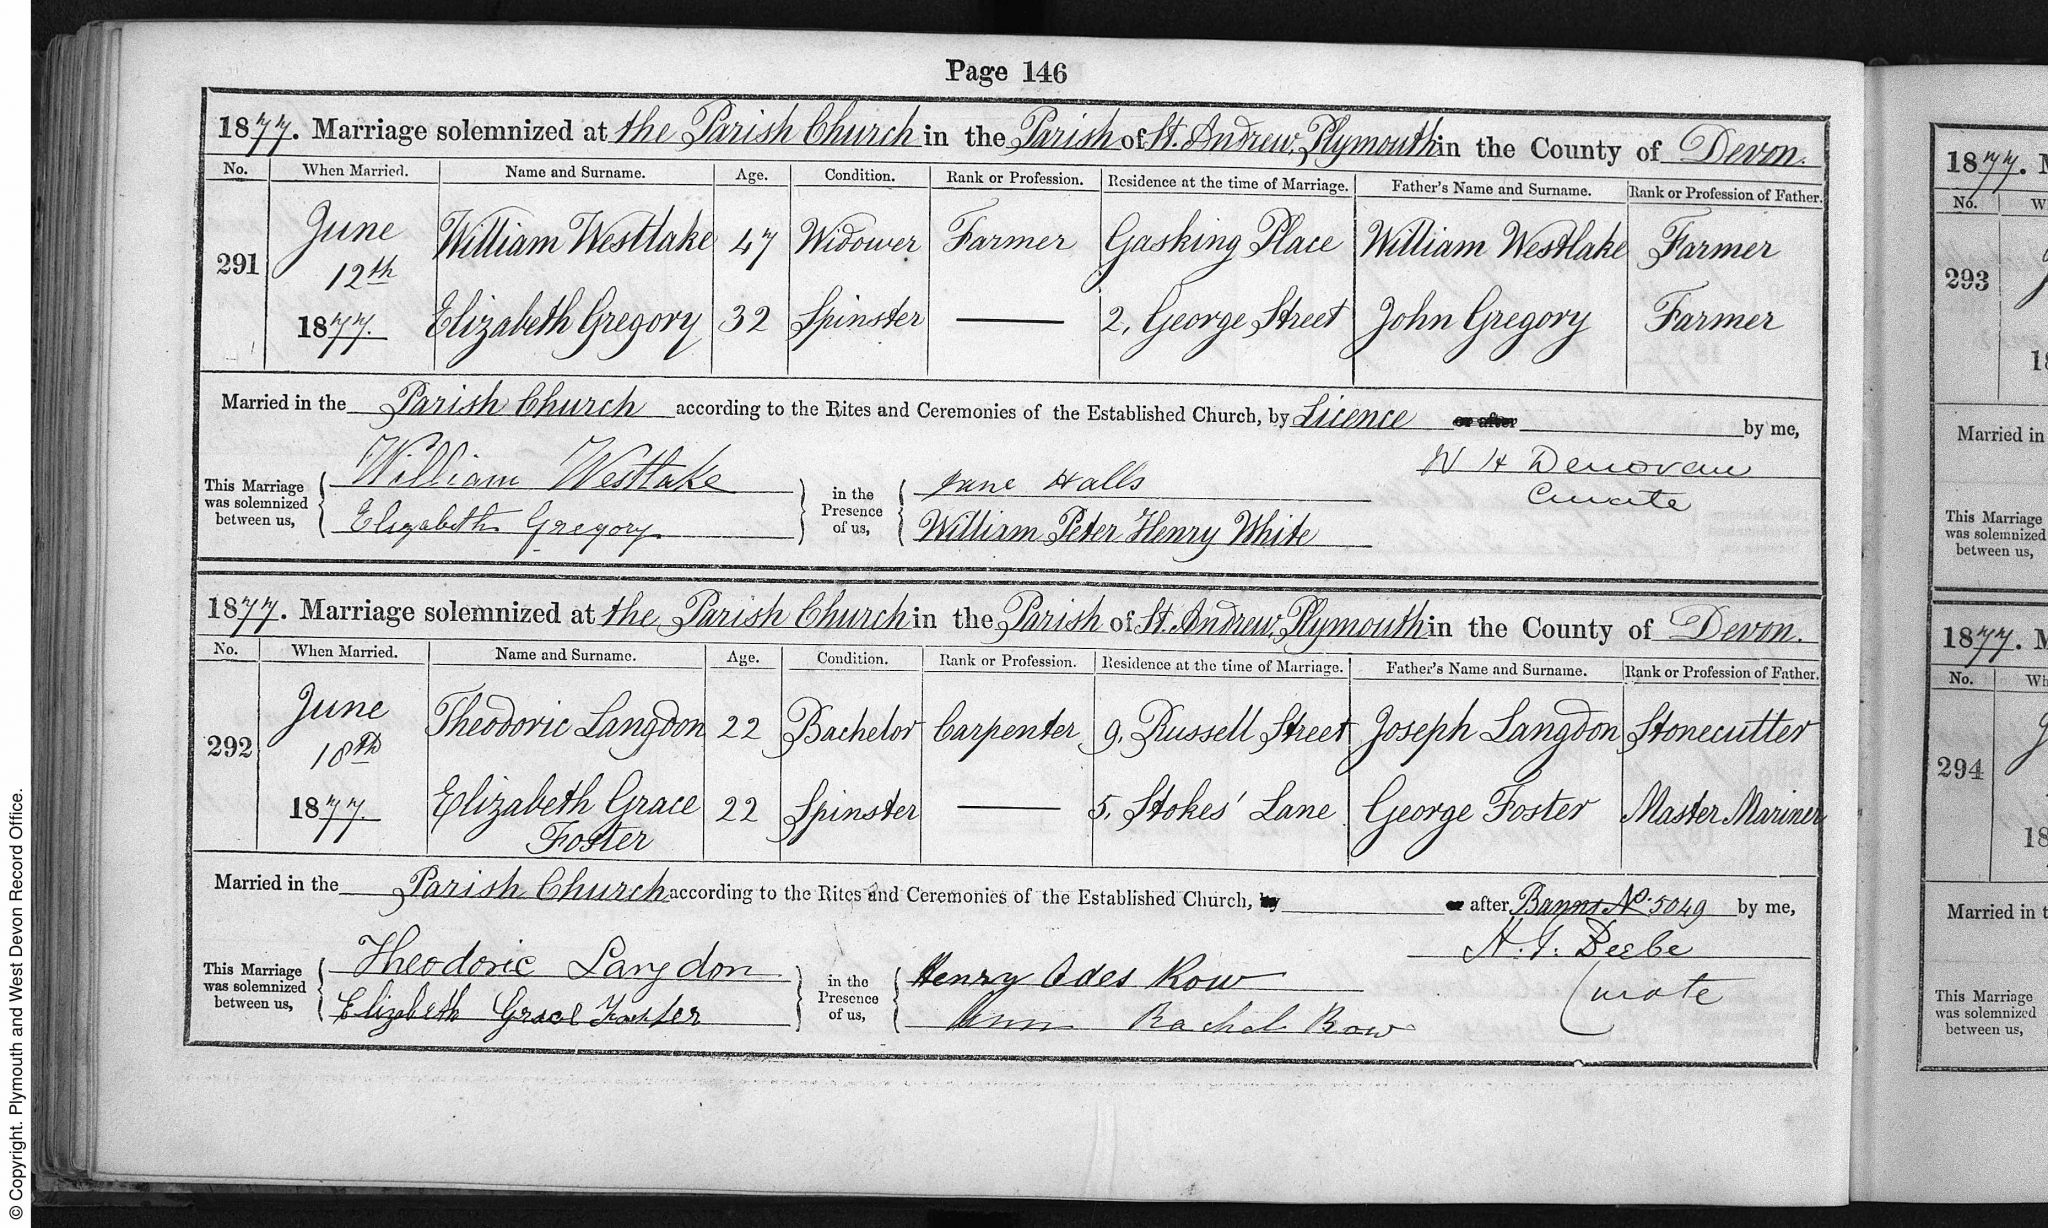 Page 146
1877. Marriage solemnized at the Parish Church in the Parish of St. Andrew, Plymouth in the County of Devon.
No. When Married. Name and Surname. Age. Condition. Rank or Profession. Residence at the time of Marriage. Father's Name and Surname. Rank or Profession of Father.
291 June 12th 1877. William Westlake 47 Widower Farmer Gasking Place William Westlake Farmer
Elizabeth Gregory 32 Spinster — 2, George Street John Gregory Farmer
Married in the Parish Church according to the Rites and Ceremonies of the Established Church, by Licence or after by me,
This Marriage was solemnized between us, William Westlake Elizabeth Gregory in the Presence of us, Jane Halls William Peter Henry White W H Donovan Curate
1877. Marriage solemnized at the Parish Church in the Parish of St. Andrew, Plymouth in the County of Devon.
No. When Married. Name and Surname. Age. Condition. Rank or Profession. Residence at the time of Marriage. Father's Name and Surname. Rank or Profession of Father.
292 June 18th 1877. Theodoric Langdon 22 Bachelor Carpenter 9, Russell Street Joseph Langdon Stonecutter
Elizabeth Grace Foster 22 Spinster — 5, Stokes' Lane George Foster Master Mariner
Married in the Parish Church according to the Rites and Ceremonies of the Established Church, by or after Banns No. 5049 by me,
This Marriage was solemnized between us, Theodoric Langdon Elizabeth Grace Foster in the Presence of us, Henry Row Ann Rachel Row Beebe Curate
1877. M
No. W
293
18
Married in
This Marriage
was solemnized
between us,
1877. M
No. Wh
294
18
Married in t
This Marriage
was solemnized
between us,
© Copyright. Plymouth and West Devon Record Office.